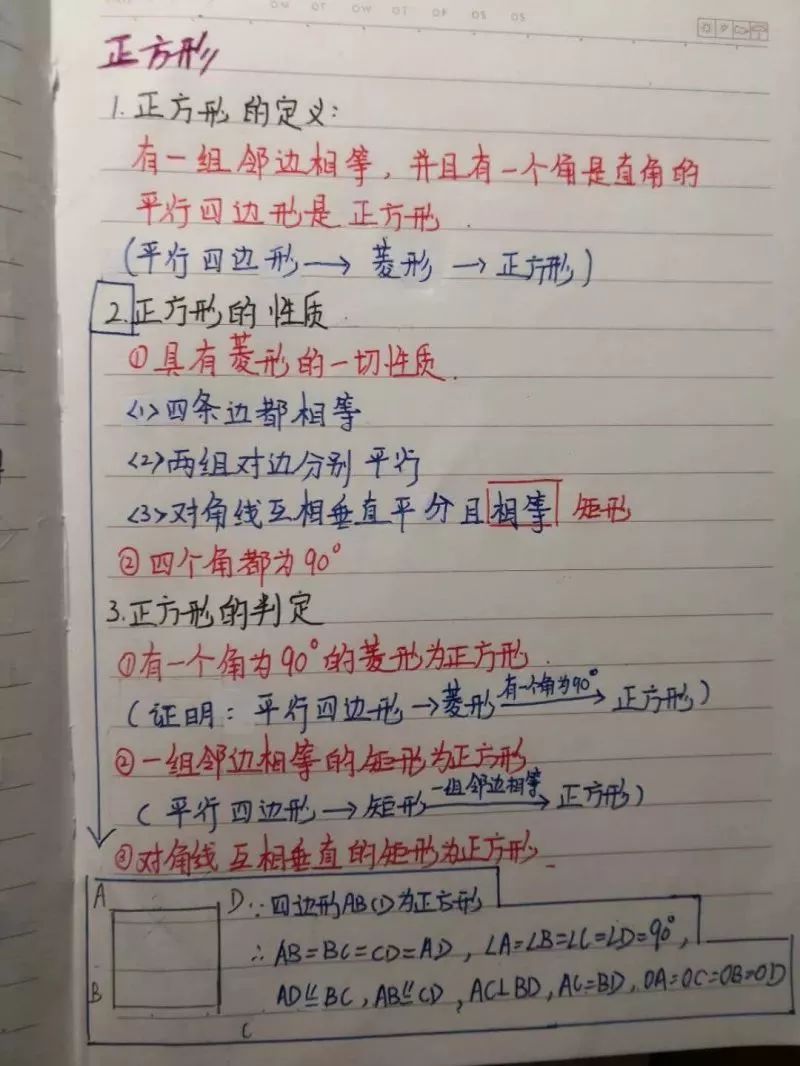 正方形
1.正方形的定义:
有一组邻边相等,并且有一个角是直角的
平行四边形是正方形.
(平行四边形→菱形→正方形)
2.正方形的性质.
①具有菱形的一切性质.
<1>四条边都相等
<2>两组对边分别平行
<3>对角线互相垂直平分且相等 矩形
②四个角都为90°
3.正方形的判定
①有一个角为90°的菱形为正方形.
(证明:平行四边形→菱形 有一个角为90°→正方形)
②一组邻边相等的矩形为正方形
(平行四边形→矩形 一组邻边相等→正方形)
③对角线互相垂直的矩形为正方形.
A D ∵四边形ABCD为正方形
∴AB=BC=CD=AD,∠A=∠B=∠C=∠D=90°,
B AD∥=BC,AB∥=CD,AC⊥BD,AC=BD,OA=OC=OB=OD
C